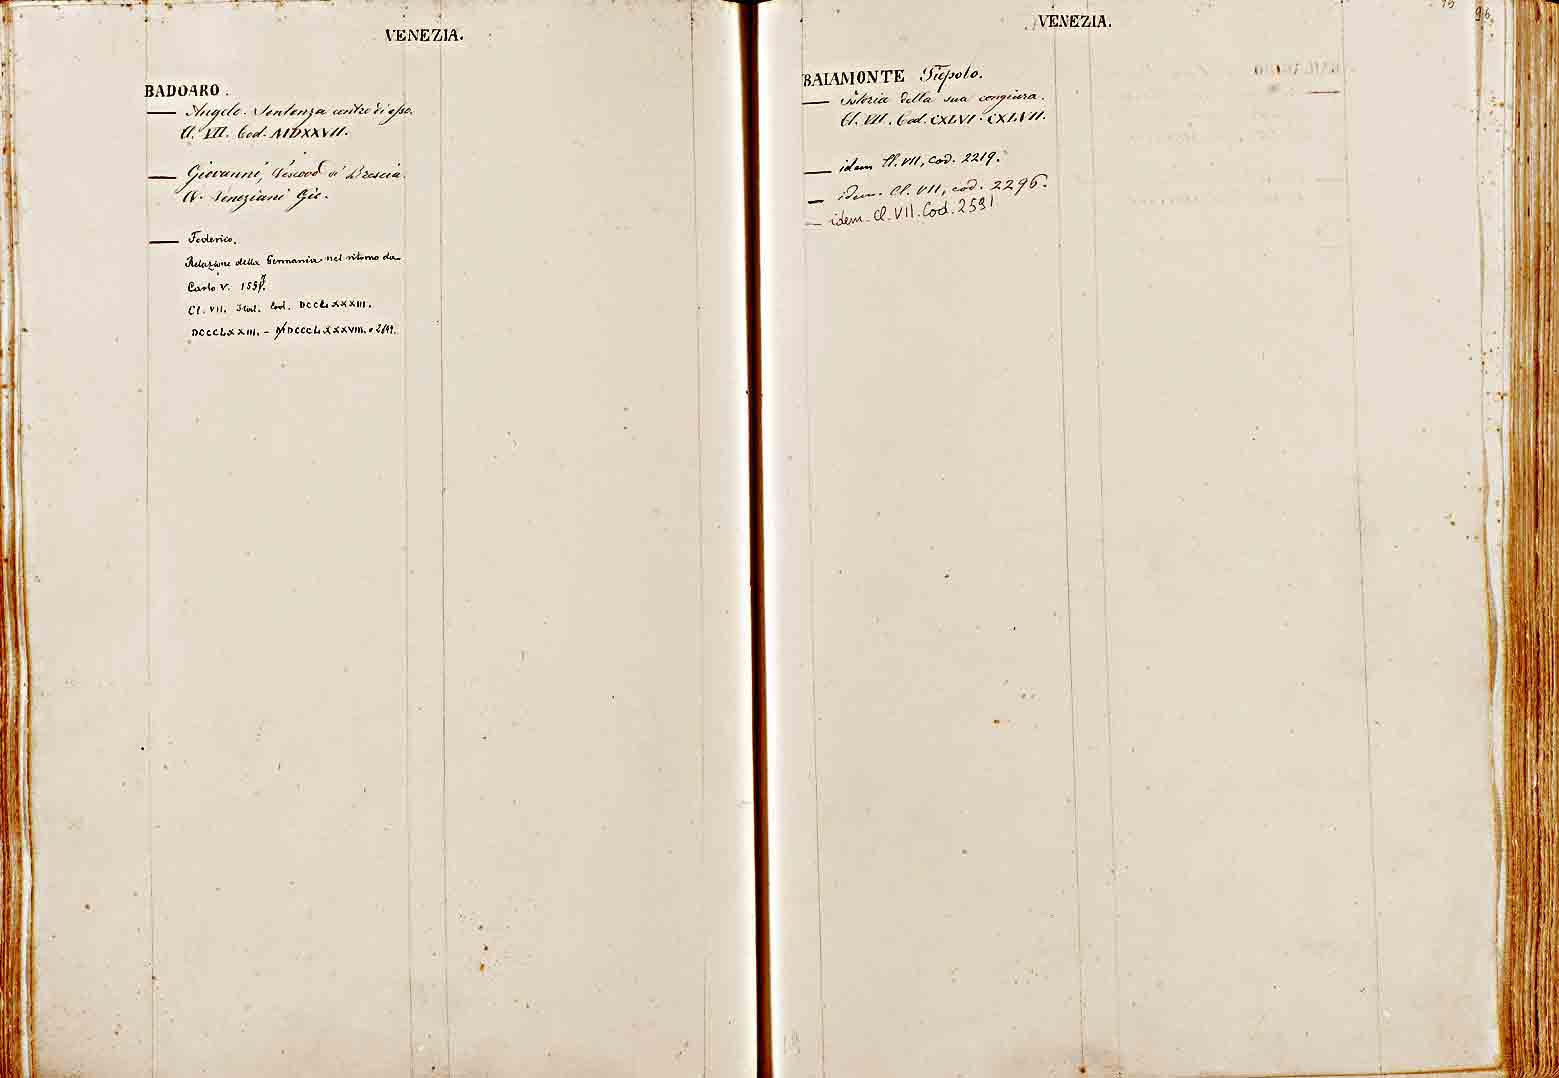 VENEZIA.
BADOARO.
— Angelo. Sentenza contro di esso.
Cl. VII. Cod. MDXXVII.
— Giovanni, Vescovo di Brescia.
V. Veneziani Gio.
— Federico.
Relazione della Germania nel ritorno da
Carlo V. 155
Cl. VII. Ital. Cod. DCCLXXXIII.
DCCCLXXIII. - MDCCCLXXXVIII. e
VENEZIA.
96.
BAIAMONTE Tiepolo.
— Istoria della sua congiura.
Cl. VII. Cod. CXLVI. CXLVII.
— idem Cl. VII, cod. 2219.
— idem. Cl. VII, cod. 2296.
— idem. Cl. VII. Cod. 2531